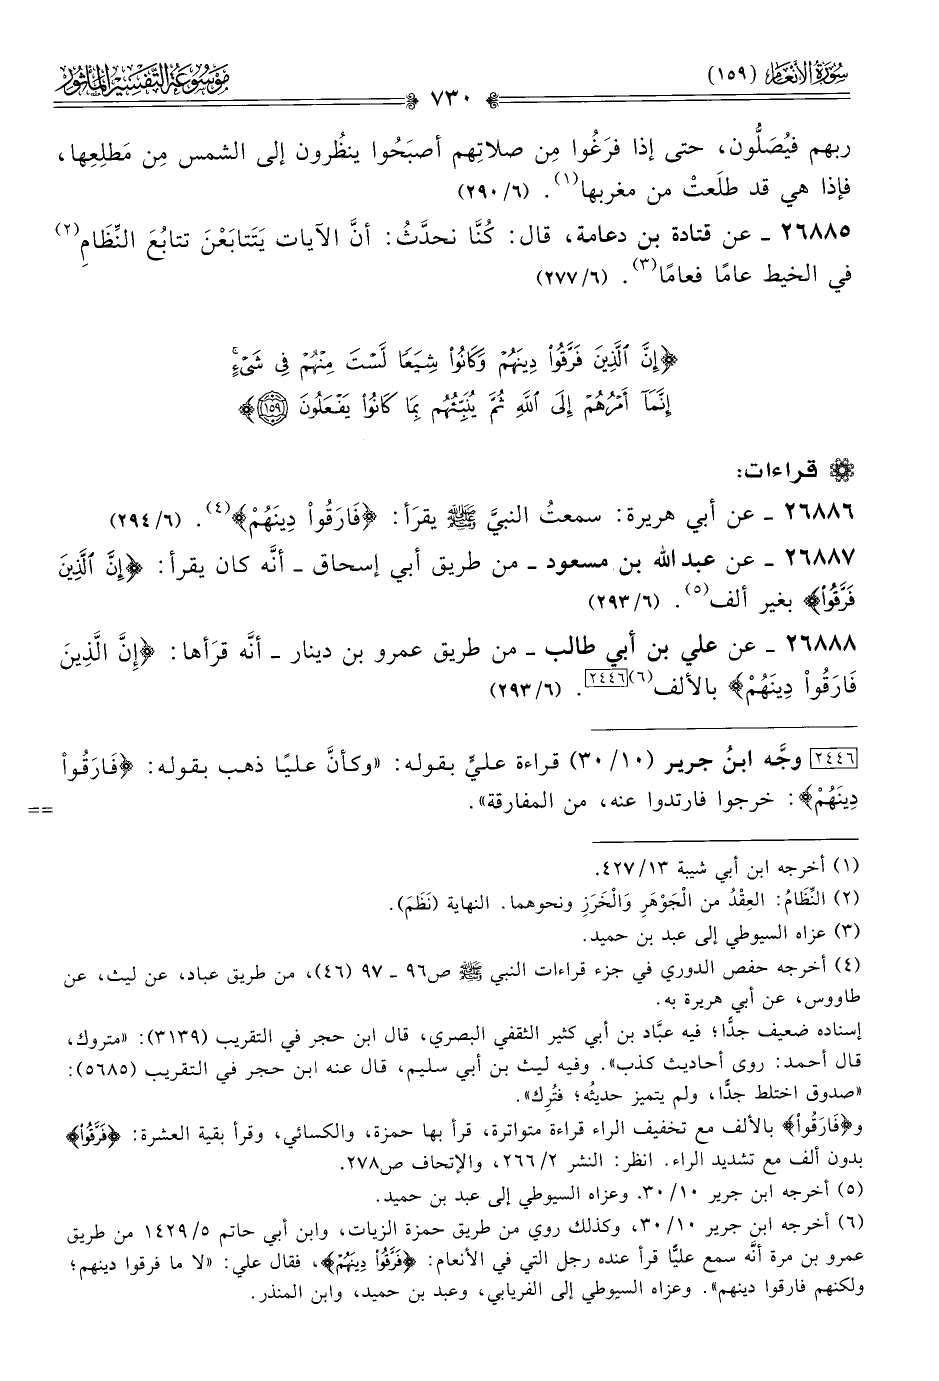 سُورَةُ الأَنْعَام (١٥٩)
٧٣٠
مَوْسُوعَةُ التَّفْسِيرِ المَأْثُور
ربهم فيُصَلُّون، حتى إذا فرَغُوا مِن صلاتِهم أصبَحُوا ينظُرون إلى الشمس مِن مَطلِعِها،
فإذا هي قد طلَعتْ من مغربها(١). (٦/ ٢٩٠)
٢٦٨٨٥ ـ عن قتادة بن دعامة، قال: كُنَّا نحدَّثُ: أنَّ الآيات يَتَتابَعْنَ تتابُعَ النِّظَامِ(٢)
في الخيط عامًا فعامًا(٣). (٦/ ٢٧٧)
﴿إِنَّ ٱلَّذِينَ فَرَّقُوا۟ دِينَهُمْ وَكَانُوا۟ شِيَعًا لَّسْتَ مِنْهُمْ فِى شَىْءٍ ۚ
إِنَّمَآ أَمْرُهُمْ إِلَى ٱللَّهِ ثُمَّ يُنَبِّئُهُم بِمَا كَانُوا۟ يَفْعَلُونَ ١٥٩﴾
قراءات:
٢٦٨٨٦ ـ عن أبي هريرة: سمعتُ النبيَّ ﷺ يقرَأ: ﴿فَارَقُواْ دِينَهُمْ﴾(٤). (٦/ ٢٩٤)
٢٦٨٨٧ ـ عن عبد الله بن مسعود ـ من طريق أبي إسحاق ـ أنَّه كان يقرأ: ﴿إِنَّ ٱلَّذِينَ
فَرَّقُواْ﴾ بغير ألف(٥). (٦/ ٢٩٣)
٢٦٨٨٨ ـ عن علي بن أبي طالب ـ من طريق عمرو بن دينار ـ أنَّه قرَأها: ﴿إِنَّ الَّذِينَ
فَارَقُواْ دِينَهُمْ﴾ بالألف(٦)[٢٤٤٦]. (٦/ ٢٩٣)
[٢٤٤٦] وجَّه ابنُ جرير (١٠/ ٣٠) قراءة عليٍّ بقوله: «وكأنَّ عليًا ذهب بقوله: ﴿فَارَقُواْ
دِينَهُمْ﴾: خرجوا فارتدوا عنه، من المفارقة».
==
(١) أخرجه ابن أبي شيبة ١٣/ ٤٢٧.
(٢) النِّظَامُ: العِقْدُ من الْجَوْهَرِ وَالْخَرَزِ ونحوهما. النهاية (نَظَمَ).
(٣) عزاه السيوطي إلى عبد بن حميد.
(٤) أخرجه حفص الدوري في جزء قراءات النبي ﷺ ص٩٦ ـ ٩٧ (٤٦)، من طريق عباد، عن ليث، عن
طاووس، عن أبي هريرة به.
إسناده ضعيف جدًّا؛ فيه عبَّاد بن أبي كثير الثقفي البصري، قال ابن حجر في التقريب (٣١٣٩): «متروك،
قال أحمد: روى أحاديث كذب». وفيه ليث بن أبي سليم، قال عنه ابن حجر في التقريب (٥٦٨٥):
«صدوق اختلط جدًّا، ولم يتميز حديثُه؛ فتُرِك».
و﴿فَارَقُواْ﴾ بالألف مع تخفيف الراء قراءة متواترة، قرأ بها حمزة، والكسائي، وقرأ بقية العشرة: ﴿فَرَّقُواْ﴾
بدون ألف مع تشديد الراء. انظر: النشر ٢/ ٢٦٦، والإتحاف ص٢٧٨.
(٥) أخرجه ابن جرير ١٠/ ٣٠. وعزاه السيوطي إلى عبد بن حميد.
(٦) أخرجه ابن جرير ١٠/ ٣٠، وكذلك روي من طريق حمزة الزيات، وابن أبي حاتم ٥/ ١٤٢٩ من طريق
عمرو بن مرة أنَّه سمع عليًّا قرأ عنده رجل التي في الأنعام: ﴿فَرَّقُواْ دِينَهُمْ﴾، فقال علي: «لا ما فرقوا دينهم؛
ولكنهم فارقوا دينهم». وعزاه السيوطي إلى الفريابي، وعبد بن حميد، وابن المنذر.